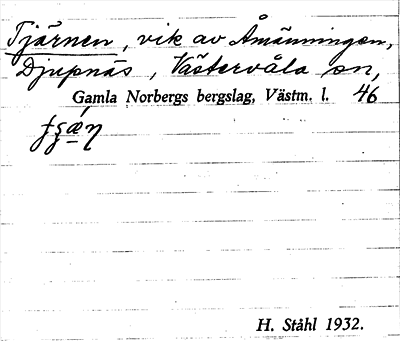 Tjärnen, vik av Åmänningen,
Djupnäs, Västervåla sn,
Gamla Norbergs bergslag, Västm. l. 46
H. Ståhl 1932.